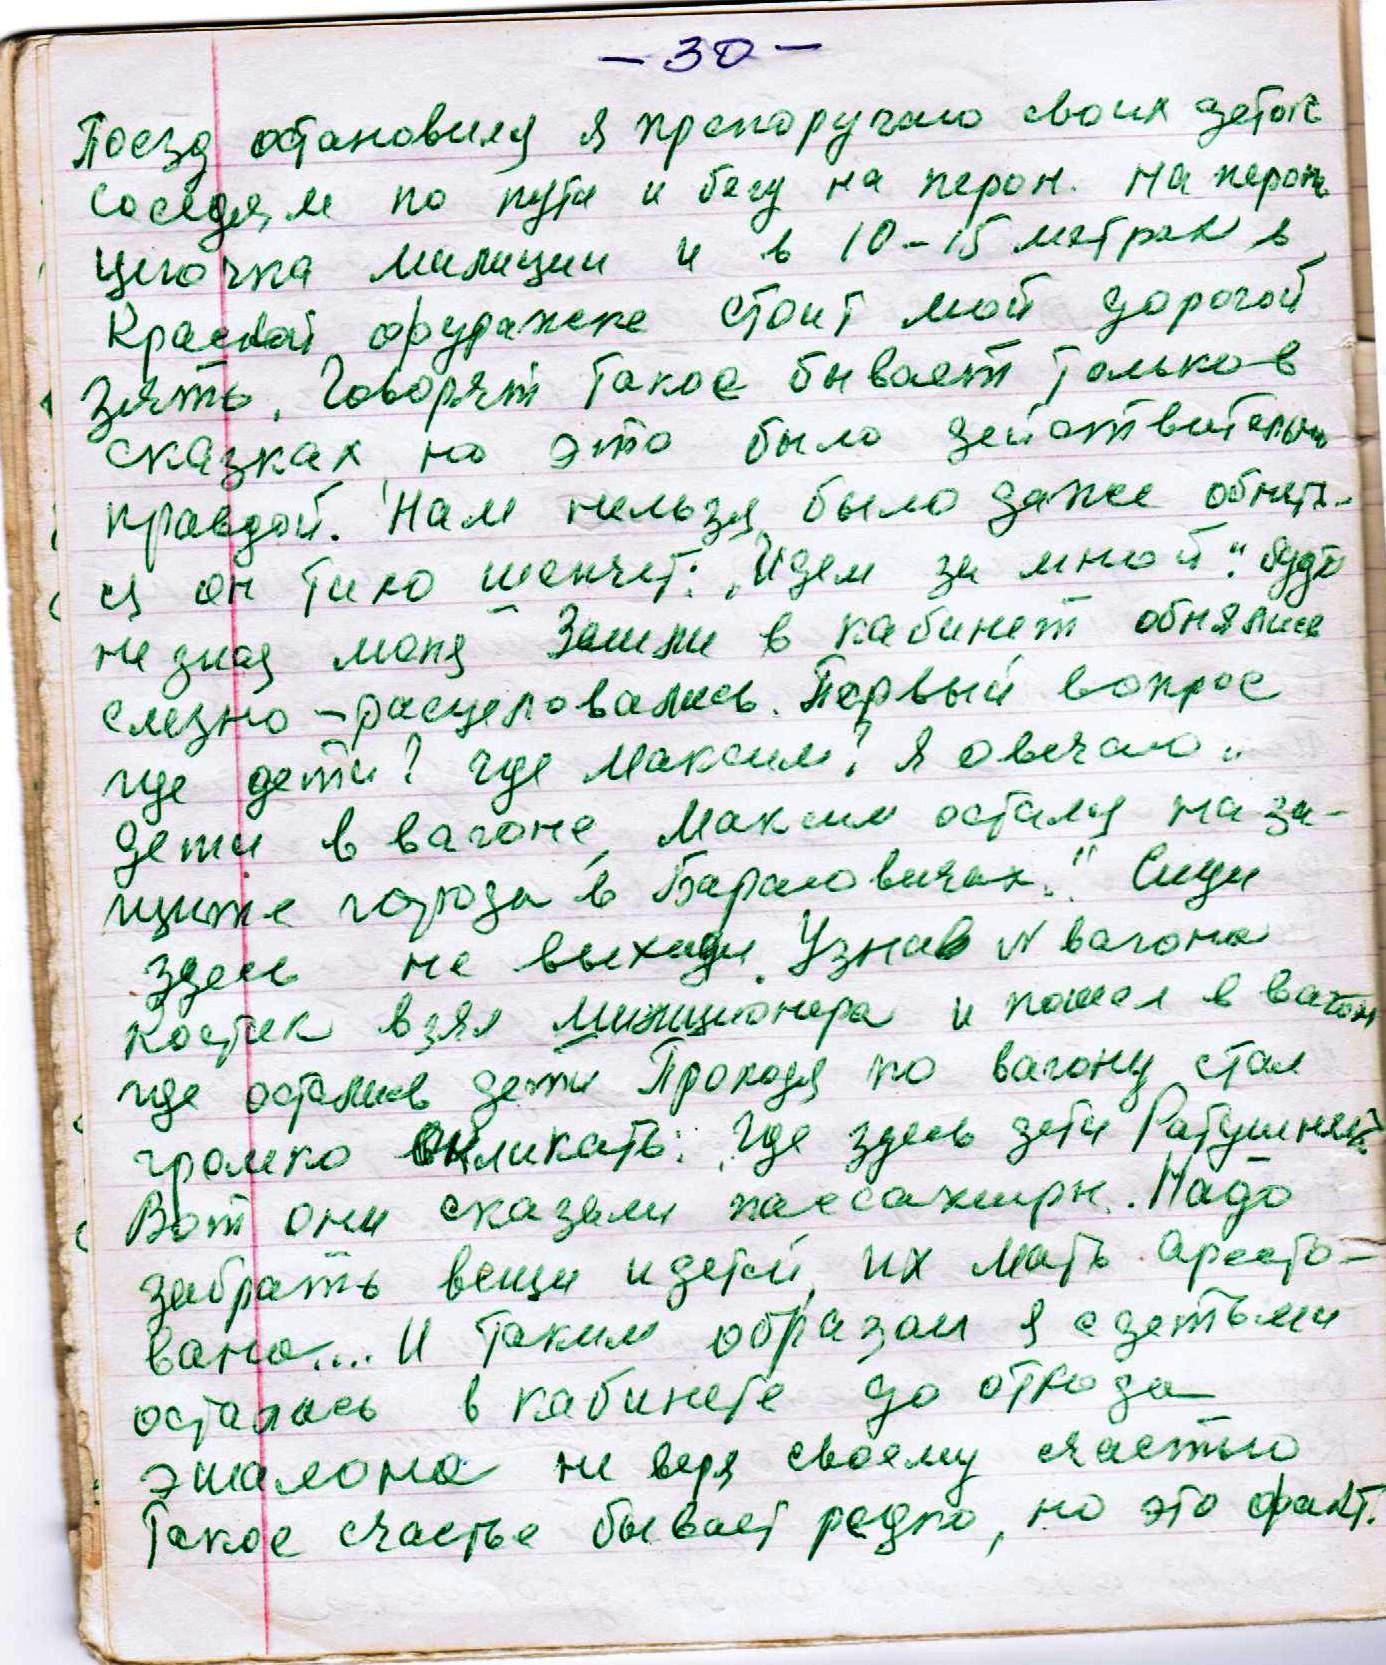 - 30 -
Поезд остановился я препоручаю своих деток
соседям по пути и бегу на перон. На пероне
цепочка милиции и в 10-15 метрах в
Красной фуражке стоит мой дорогой
зять. Говорят такое бывает только в
сказках но это было действительно
правдой. Нам нельзя было даже обнять-
ся он тихо шепчет: „Идем за мной". будто
не зная меня Зашли в кабинет обнялись
слезно - расцеловались. Первый вопрос
где дети? где Максим? Я овечаю „
дети в вагоне, Максим остался на за-
щите города в Барановичах." Сиди
здесь не выходи. Узнав № вагона
Костик взял милиционера и пошел в вагон
где остались дети Проходя по вагону стал
громко окликать: „где здесь дети Ратушней?
Вот они сказали пассажиры. Надо
забрать вещи и детей, их мать аресто-
вана.... И таким образом я с детьми
осталась в кабинете до отхода
эшалона не веря своему счастью
Такое счастье бывает редко, но это факт.